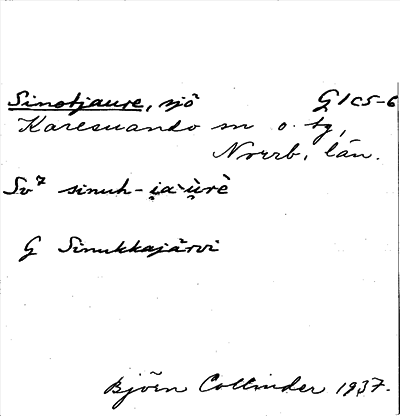 Sinotjaure, sjö G 1c5-6
Karesuando sn o. tg,
Norrb. län.
Sv⁷ sinuh-i̯a·ùrè
G Sinukkajärvi
Björn Collinder 1937.